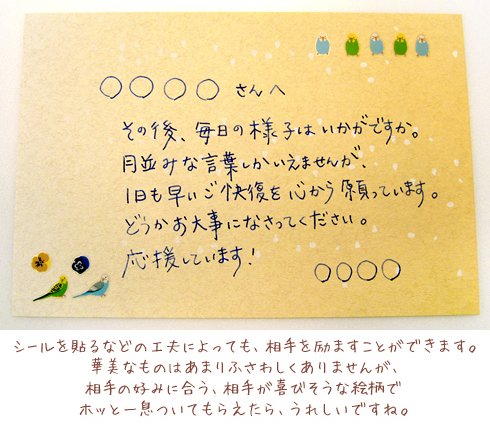 ○○○○ さんへ
その後、毎日の様子はいかがですか。
月並みな言葉しかいえませんが、
1日も早いご快復を心から願っています。
どうかお大事になさってください。
応援しています!
○○○○
シールを貼るなどの工夫によっても、相手を励ますことができます。
華美なものはあまりふさわしくありませんが、
相手の好みに合う、相手が喜びそうな絵柄で
ホッと一息ついてもらえたら、うれしいですね。